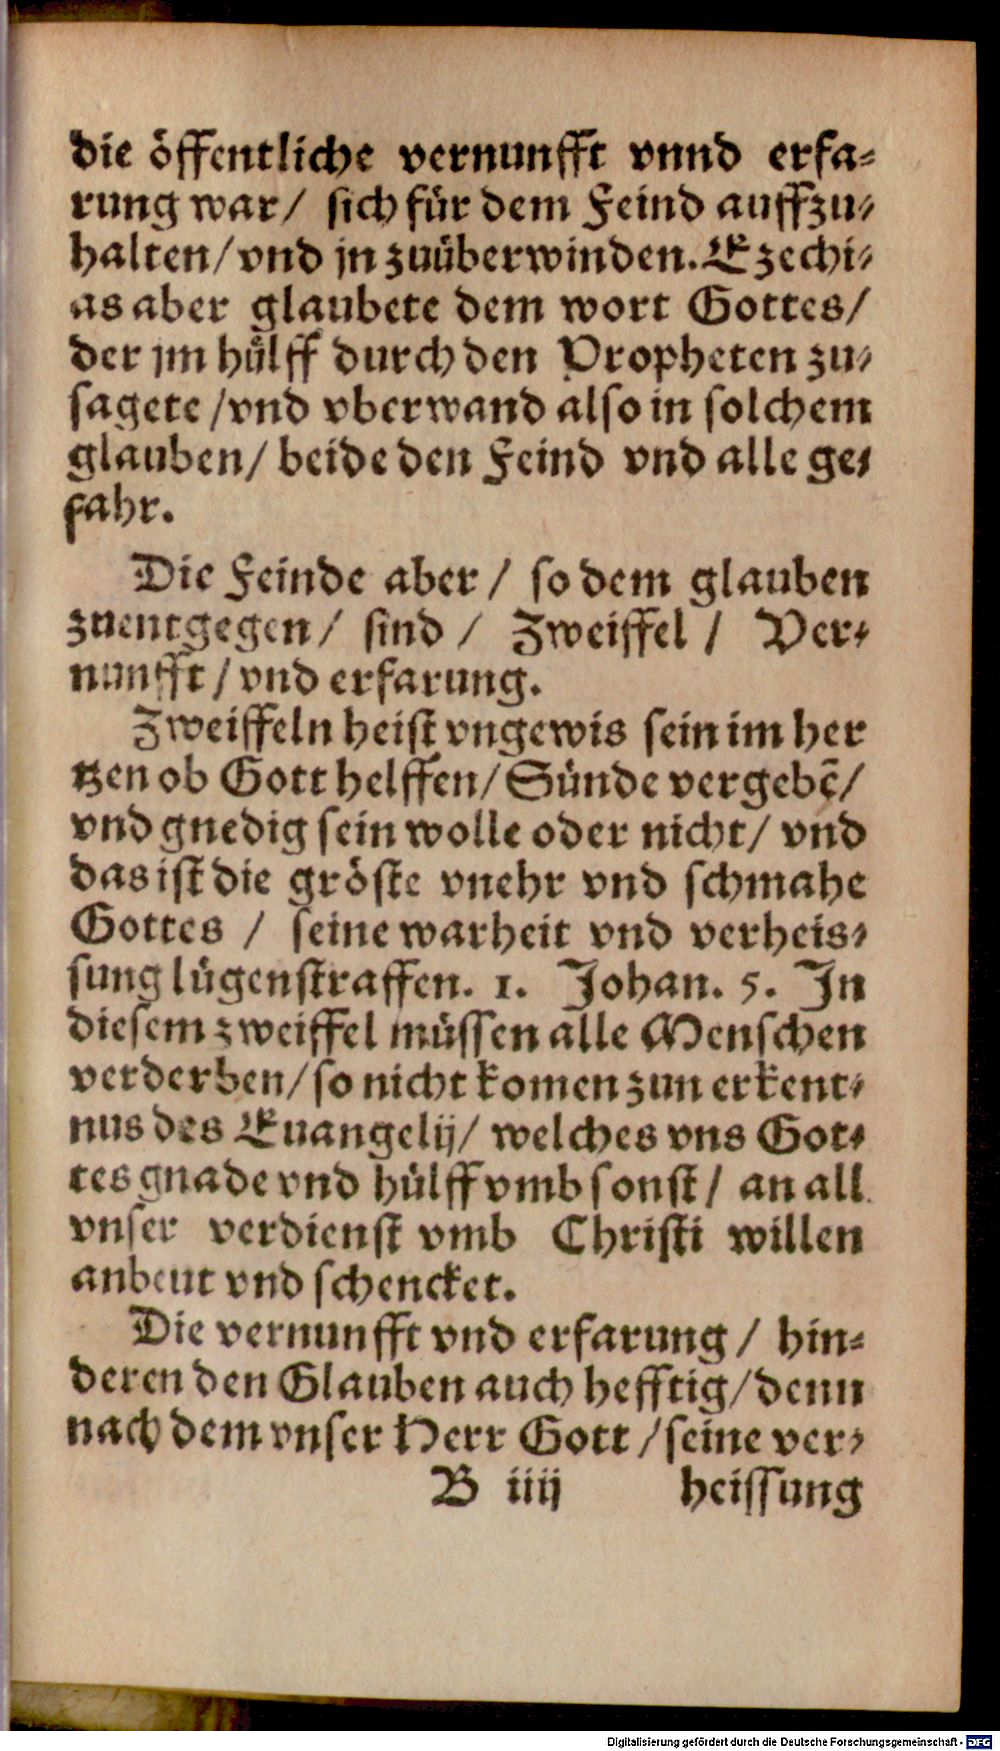 die öffentliche vernunfft vnnd erfa-
rung war/ sich für dem Feind auffzu-
halten/ vnd jn zuüberwinden. Ezechi-
as aber glaubete dem wort Gottes/
der jm hülff durch den Propheten zu-
sagete /vnd vberwand also in solchem
glauben/ beide den Feind vnd alle ge-
fahr.
Die Feinde aber / so dem glauben
zuentgegen/ sind / Zweiffel / Ver-
nunfft / vnd erfarung.
Zweiffeln heist vngewis sein im her
tzen ob Gott helffen/ Sünde vergebē/
vnd gnedig sein wolle oder nicht/ vnd
das ist die gröste vnehr vnd schmahe
Gottes / seine warheit vnd verheis-
sung lügenstraffen. 1. Johan. 5. In
diesem zweiffel müssen alle Menschen
verderben/ so nicht komen zun erkent-
nus des Euangelij/ welches vns Got-
tes gnade vnd hülff vmb sonst/ an all
vnser verdienst vmb Christi willen
anbeut vnd schencket.
Die vernunfft vnd erfarung / hin-
deren den Glauben auch hefftig/ denn
nach dem vnser Herr Gott / seine ver-
B iiij heissung
Digitalisierung gefördert durch die Deutsche Forschungsgemeinschaft - DFG